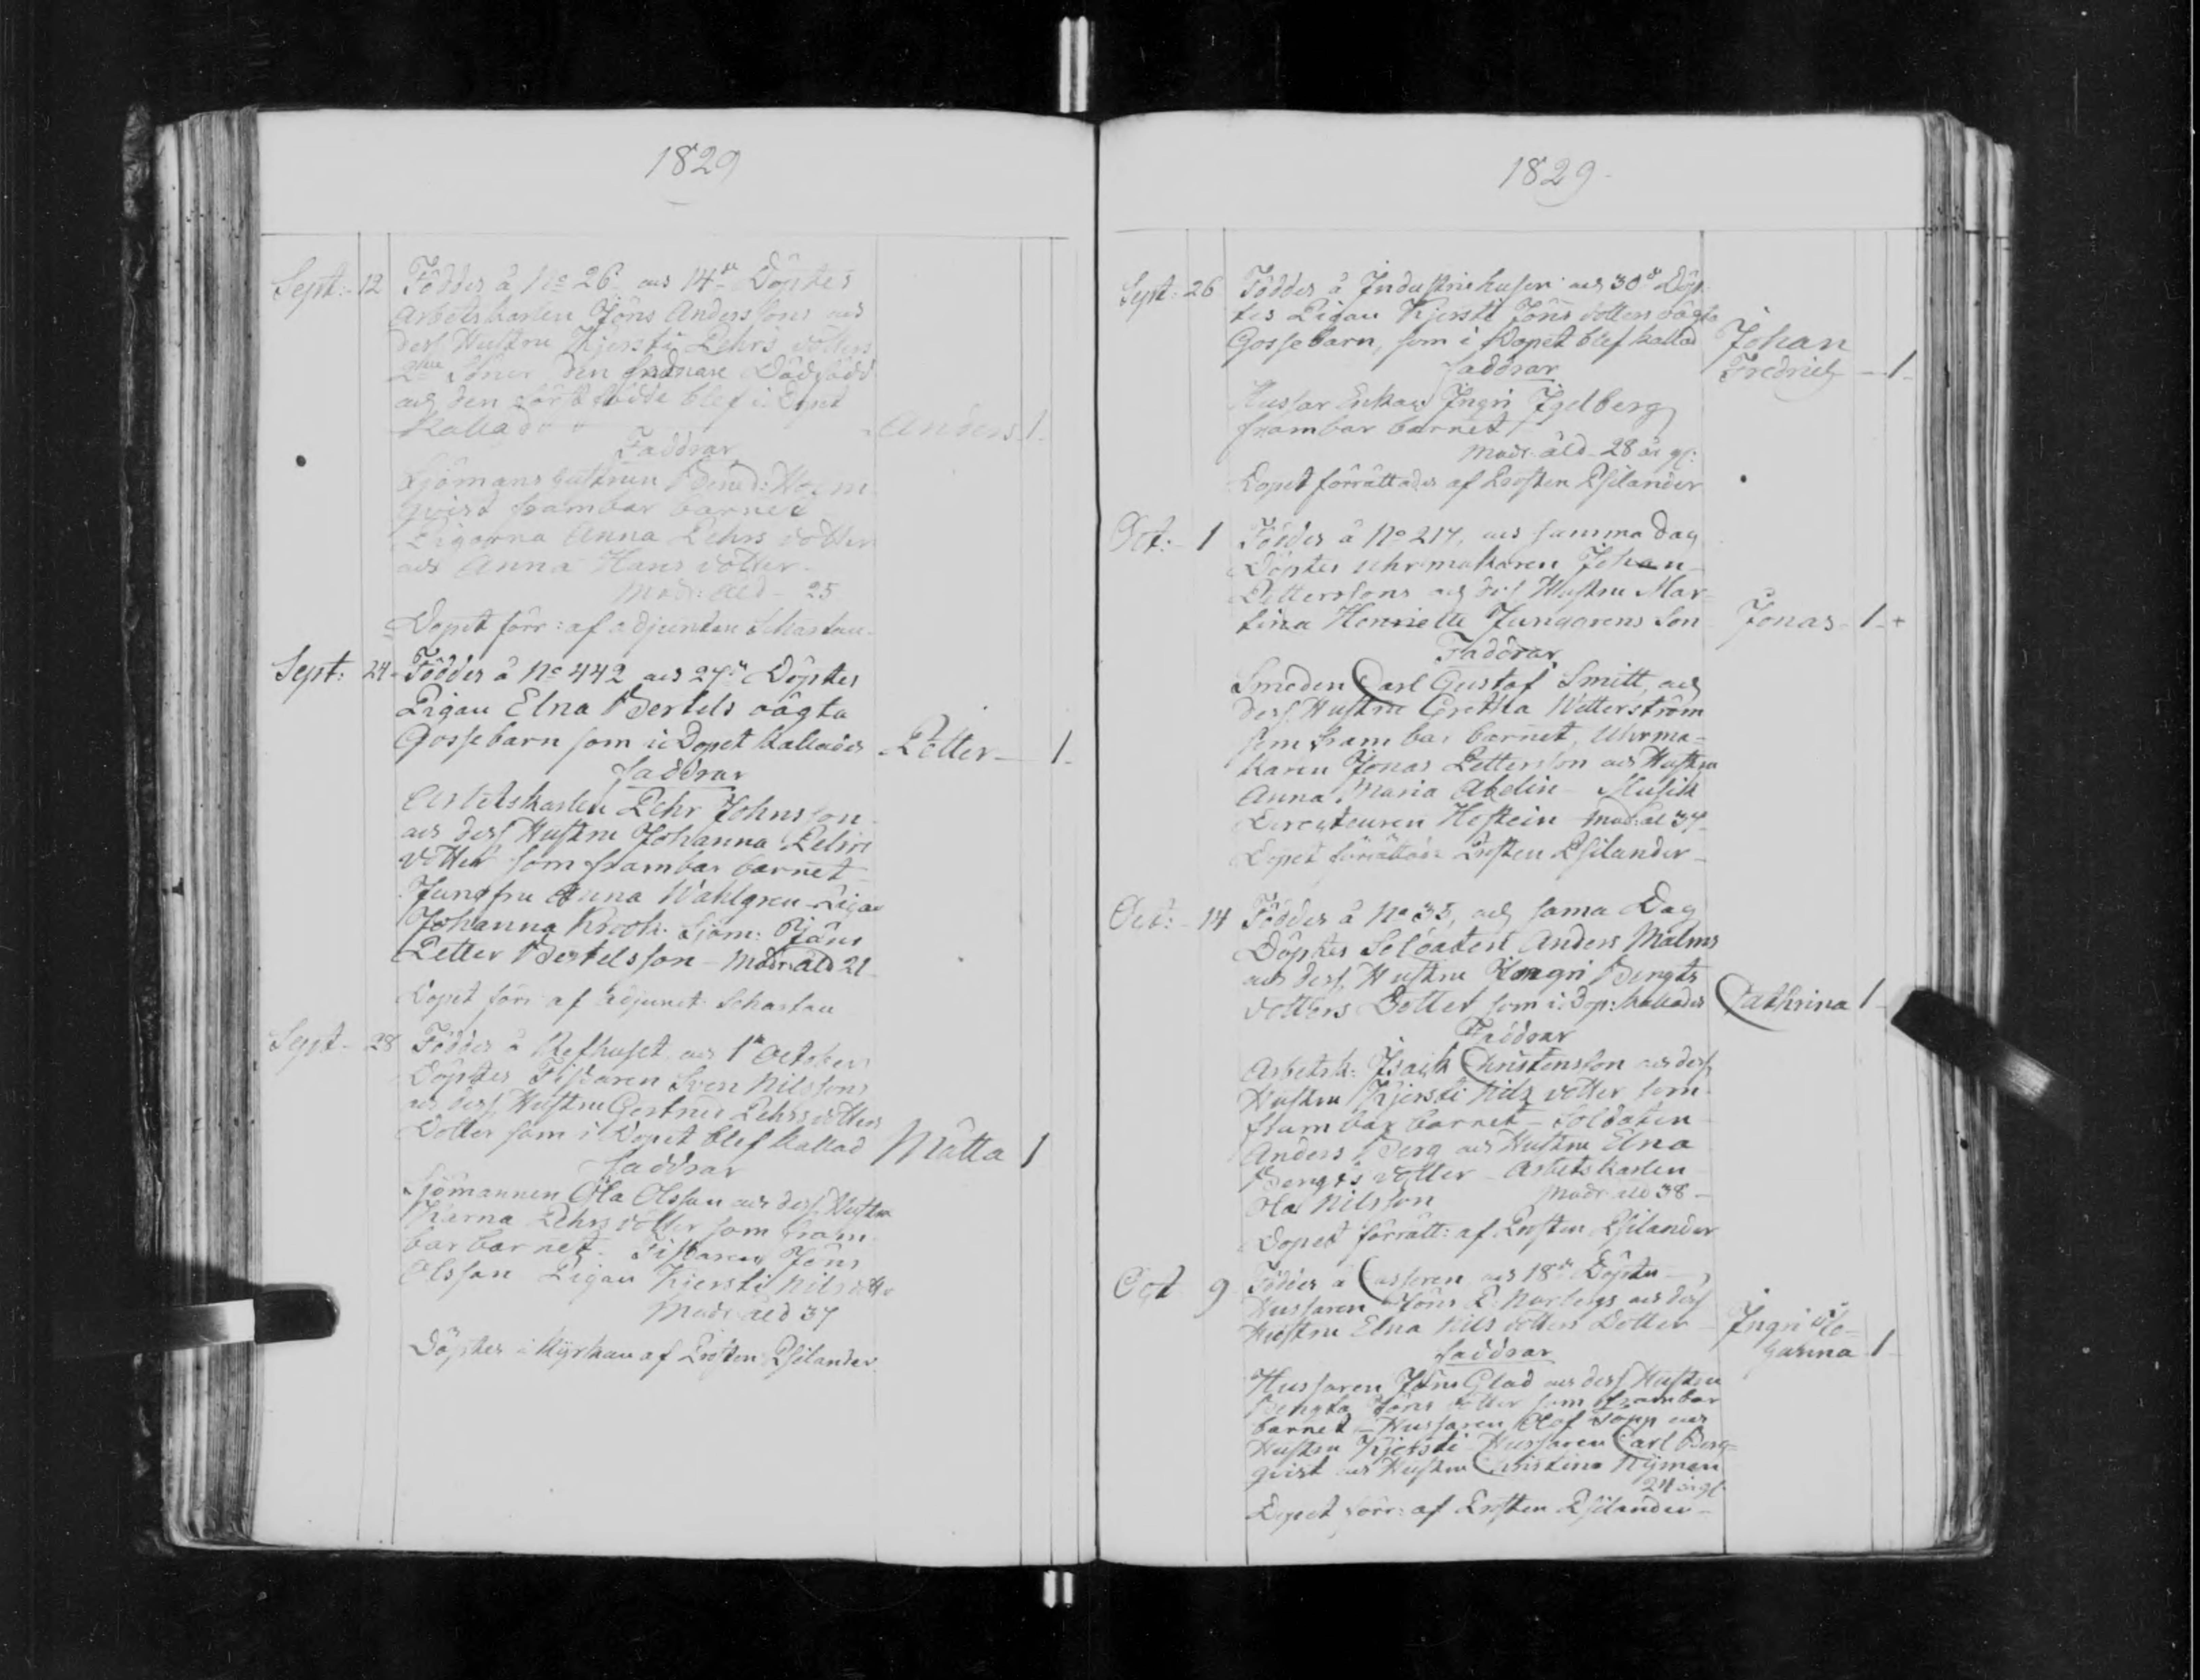 1829
Sept: 12 Föddes å No 26 och 14de Döptes
Arbetskarlen Jöns Anderssons och
dess Hustru Kjersti Pehrs dotters
2ne Söner den sednare Dödfödd
och den först födde blef i Dopet
Kallad Anders 1
Faddrar
Sjömans hustrun Bened: Holm
qvist frambar barnet
Pigorna Anna Pehrs dotter
och Anna Hans dotter
Modr: åld 25
Dopet förr: af adjuncten Schartau
Sept: 24 Föddes å No 442 och 27de Döptes
Pigan Elna Bertels oägta
Gossebarn som i Dopet kallades Petter 1
Faddrar
Arbetskarlen Pehr Johnsson
och dess Hustru Johanna Pehrs
dotter som frambar barnet
Jungfru Anna Wahlgren Pigan
Johanna Krook Sjöm: Jöns
Petter Bertelsson Modr: åld 21
Dopet förr: af Adjunct Schartau
Sept 28 Föddes å Refhuset och 1sta October
Döptes Fiskaren Sven Nilssons
och dess Hustru Gertrud Pehrsdotters
Dotter som i Dopet blef kallad Mätta 1
Faddrar
Sjömannen Ola Olsson och dess Hustru
Karna Pehrsdotter som fram
bar barnet. Fiskaren Jöns
Olsson Pigan Kjersti Nilsdotter
Modr: åld 37
Döptes i Kyrkan af Prosten Psilander
1829
Sept: 26 Föddes å Industriehuset och 30de Döp
tes Pigan Kjersti Jöns dotters oägta
Gossebarn, som i Dopet blef kallad Johan
Fredrich 1
Faddrar
Hussar Enkan Ingri Igelberg
frambar barnet
Modr: åld 28 år gl:
Dopet förrättades af Prosten Psilander
Oct: 1 Föddes å No 217, och samma dag
Döptes Uhrmakaren Johan
Petterssons och dess Hustru Mar
tina Henriette Jungarens Son Jonas 1 +
Faddrar
Smeden Carl Gustaf Smitt och
dess Hustru Gretha Wetterström
som frambar barnet, Uhrma=
karen Jonas Pettersson och Hustru
Anna Maria Abelin Musik
Directeuren Hestein Modr: ål 37
Dopet förrättade Prosten Psilander
Oct: 14 Föddes å No 35, och sama Dag
Döptes Soldaten Anders Malms
och dess Hustru Ingri Bengts
dotters Dotter som i Dop: kallades Cathrina 1
Faddrar
Arbetsk: Isack Christensson och dess
Hustru Kjersti Nils dotter som
frambar barnet Soldaten
Anders Berg och Hustru Elna
Bengts dotter Arbetskarlen
Ola Nilsson Modr: åld 38
Dopet förrätt: af Prosten Psilander
Oct 9 Föddes å Casseren och 18de Döptes
Hussaren Jöns P. Norbergs och dess
Hustru Elna Nils dotters Dotter Ingri Jo=
hanna 1
Faddrar
Hussaren Jöns Glad och dess Hustru
Bengta Jöns dotter som frambar
barnet Hussaren Olof Topp och
Hustru Kjersti Hussaren Carl Berg=
qvist och Hustru Christina Nyman
24 år gl
Dopet förr: af Prosten Psilander